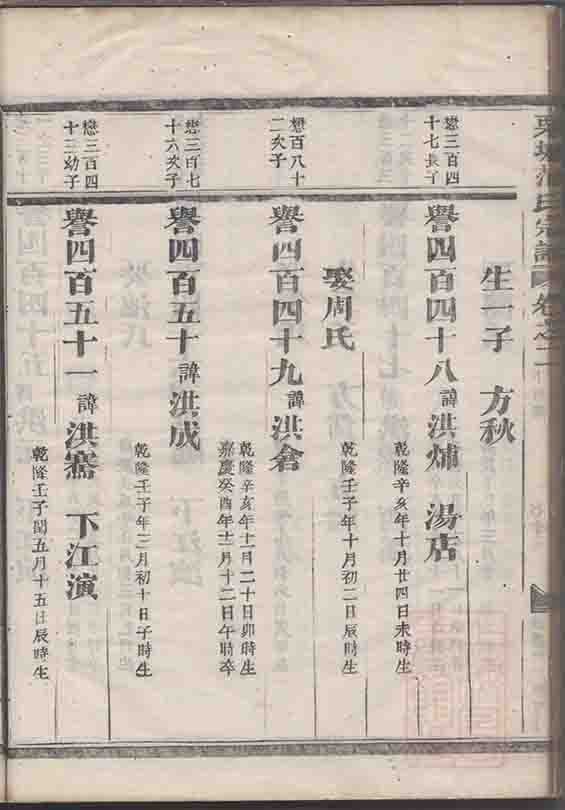 氏宗譜 卷之二
生一子 方秋
懋三百四十七長子
譽四百四十八諱洪煒 湯店
乾隆辛亥年十月廿四日未時生
娶周氏
乾隆壬子年十月初二日辰時生
懋百八十二次子
譽四百四十九諱洪倉
乾隆辛亥年十一月二十日卯時生
嘉慶癸酉年十二月十二日午時卒
懋三百七十六次子
譽四百五十諱洪成
乾隆壬子年三月初十日子時生
懋三百四十三幼子
譽四百五十一諱洪騫 下江演
乾隆壬子閏五月十五日辰時生